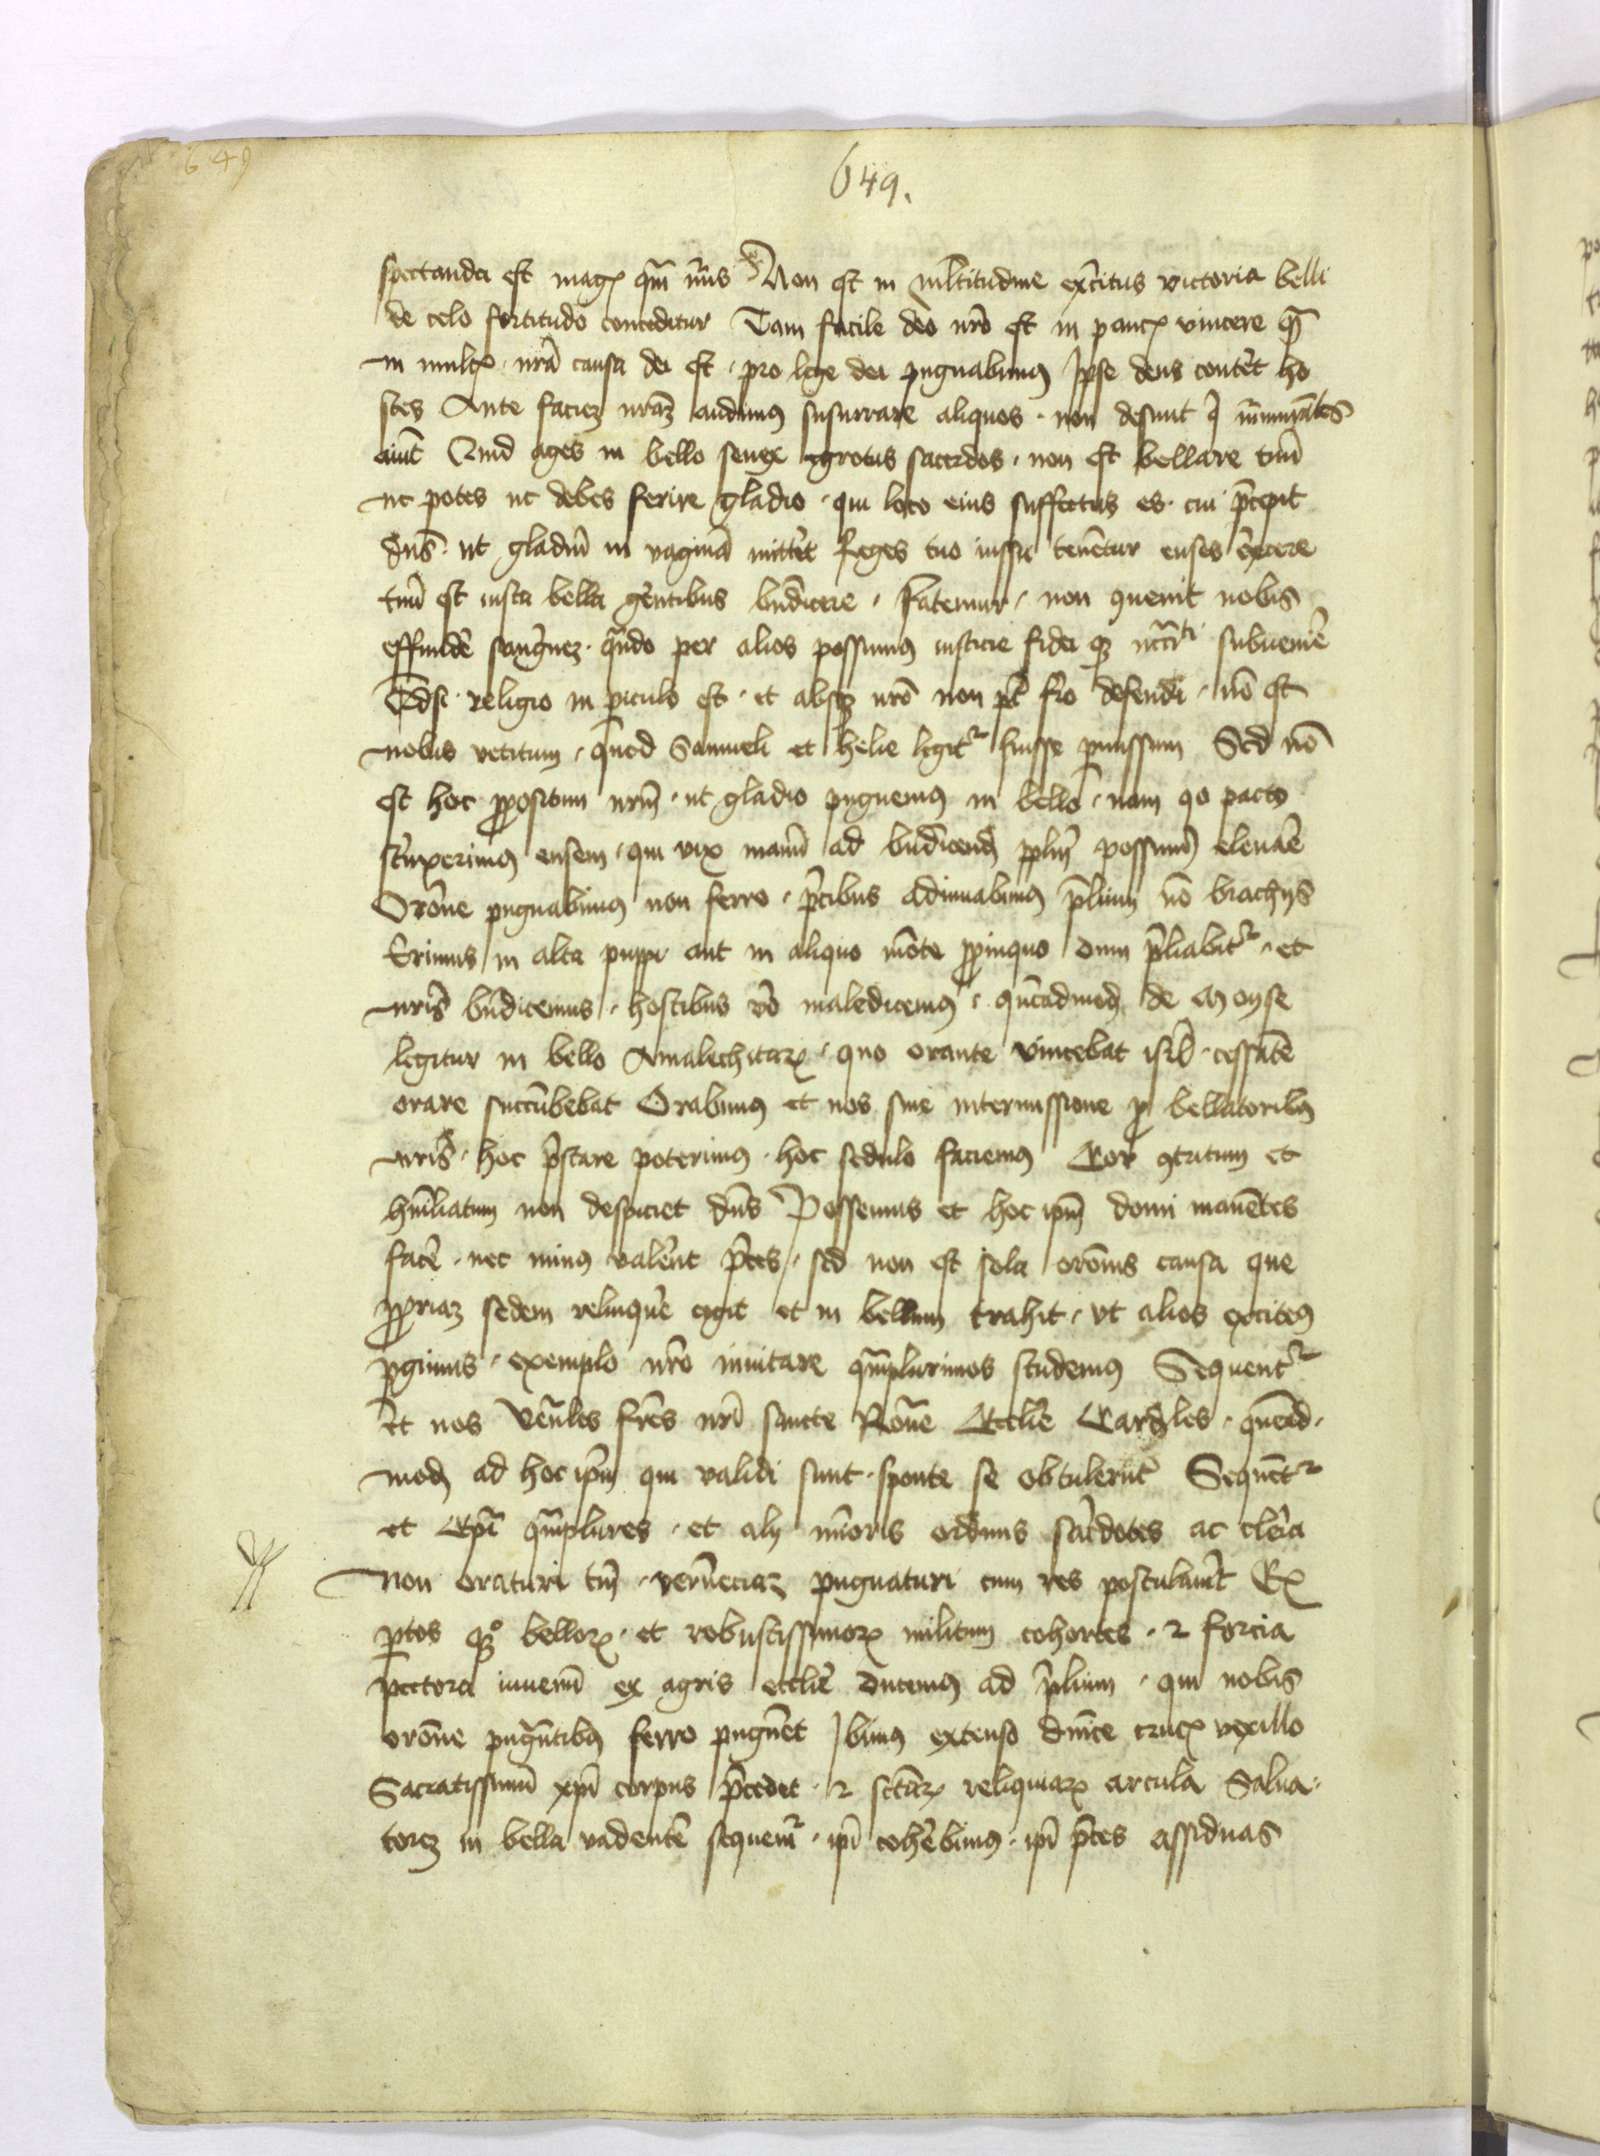 649
649.
spectanda est magis qm̄ nūs Non est in multitudine exercitus victoria belli
de celo fortitudo conceditur Tam facile deo nr̄o est in paucis vincere qm̄
in multis · nrā causa dei est · pro lege dei pugnabimus Ipse deus conteret ho
stes Ante faciem nrāz audimus susurrare aliquos · non desunt q̄ murmurātes
aiunt Quid ages in bello senex egrotus sacerdos · non est bellare tuū
nec potes nec debes ferire gladio · qui loco eius suffectus es · cui p̄cepit
dn̄s · ut gladiū in vaginā mittēt Reges tuo iussu tenētur enses exercere
tuū est iusta bella gerētibus bn̄dicere · fatemur · non 9uenit nobis
effundēr sanguinēz · quādo per alios possumus iusticie fidei qz subueniēr
Qd si religio in piculo est · et absqz nr̄o non pōt fr̄o defendi · nō est
nobis vetitum · quod Samueli et helie legitr fuisse pmissum Sed nō
est hoc propositum nrm̄ · ut gladio pugnemus in bello · nam quo pacto
strīxerimus ensem · qui vix manū ad bn̄dicendū pplm̄ possumus eleuare
Orōne pugnabimus non ferro · p̄cibus adiuuabimus p̄lium nō brachijs
Erimus in alta puppi aut in aliquo mōte propinquo dum p̄liabitr · et
nris bn̄dicemus · hostibus vo maledicemus · quēadmodū de Moyse
legitur in bello Amalechitarz · quo orante vincebat isrl̄ · cessātē
orare succūbebat Orabimus et nos sine intermissione p bellatoribus
nris · hoc p̄stare poterimus · hoc sedulo faciemus Cor 9tritum et
humiliatum non despiciet dn̄s Possemus et hoc ipm̄ domi manētes
facēr · nec minus valerēt p̄ces · sed non est sola orōnis causa que
propriaz sedem relinquēr cogit et in bellum trahit · ut alios excitemus
pgimus · exemplo nr̄o inuitare qm̄plurimos studemus Sequentr
Et nos Ven̄les fr̄es nr̄i sancte Roāne Ecclīe Cardles · quēad·
modū ad hoc ipm̄ qui validi sunt · sponte se obtulerūt Sequētr
et Ep̄i qm̄plures · et alij minoris ordinis sac̄dotes ac cler̄ici
Non oraturi tm̄ · verūeciaz pugnaturi cum res postulauit Ex
ptos qzo bellorz · et robustissimorz militum cohortes · et forcia
pectora iuuenū ex agris ecclīe ducemus ad p̄lium · qui nobis
orōne pugnātibus ferro pugnēt Ibimus extenso dn̄ice crucis vexillo
Sacratissimū xpī corpus p̄cedet · et sctārz reliquiarz arcula Salua·
torez in bella vadentē sequemr · ip̄i cohēbimus · ip̄i p̄ces assiduas